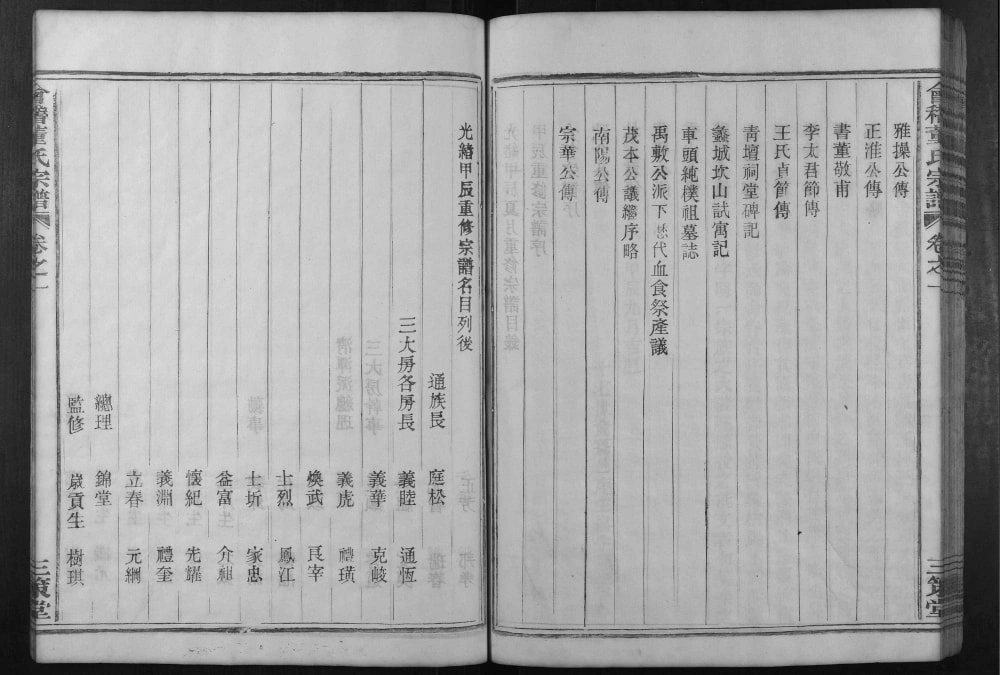 會稽董氏宗譜 卷之一 三策堂
雅操公傳
正淮公傳
書董敬甫
李太君節傳
王氏貞節傳
青壇祠堂碑記
蠡城坎山試寓記
車頭純樸祖墓誌
禹敷公派下歷代血食祭產議
茂本公議繼序略
南陽公傳
宗華公傳
光緒甲辰重修宗譜名目列後
通族長 庭松
三大房各房長 義睦 通恆
義華 克峻
義虎 禮璜
煥武 良宰
士烈 鳳江
士圻 家忠
益富 介祉
懷紀 先耀
義淵 禮奎
立春 元綱
總理 錦堂
監修 歲貢生 樹琪
會稽董氏宗譜 卷之一 三策堂